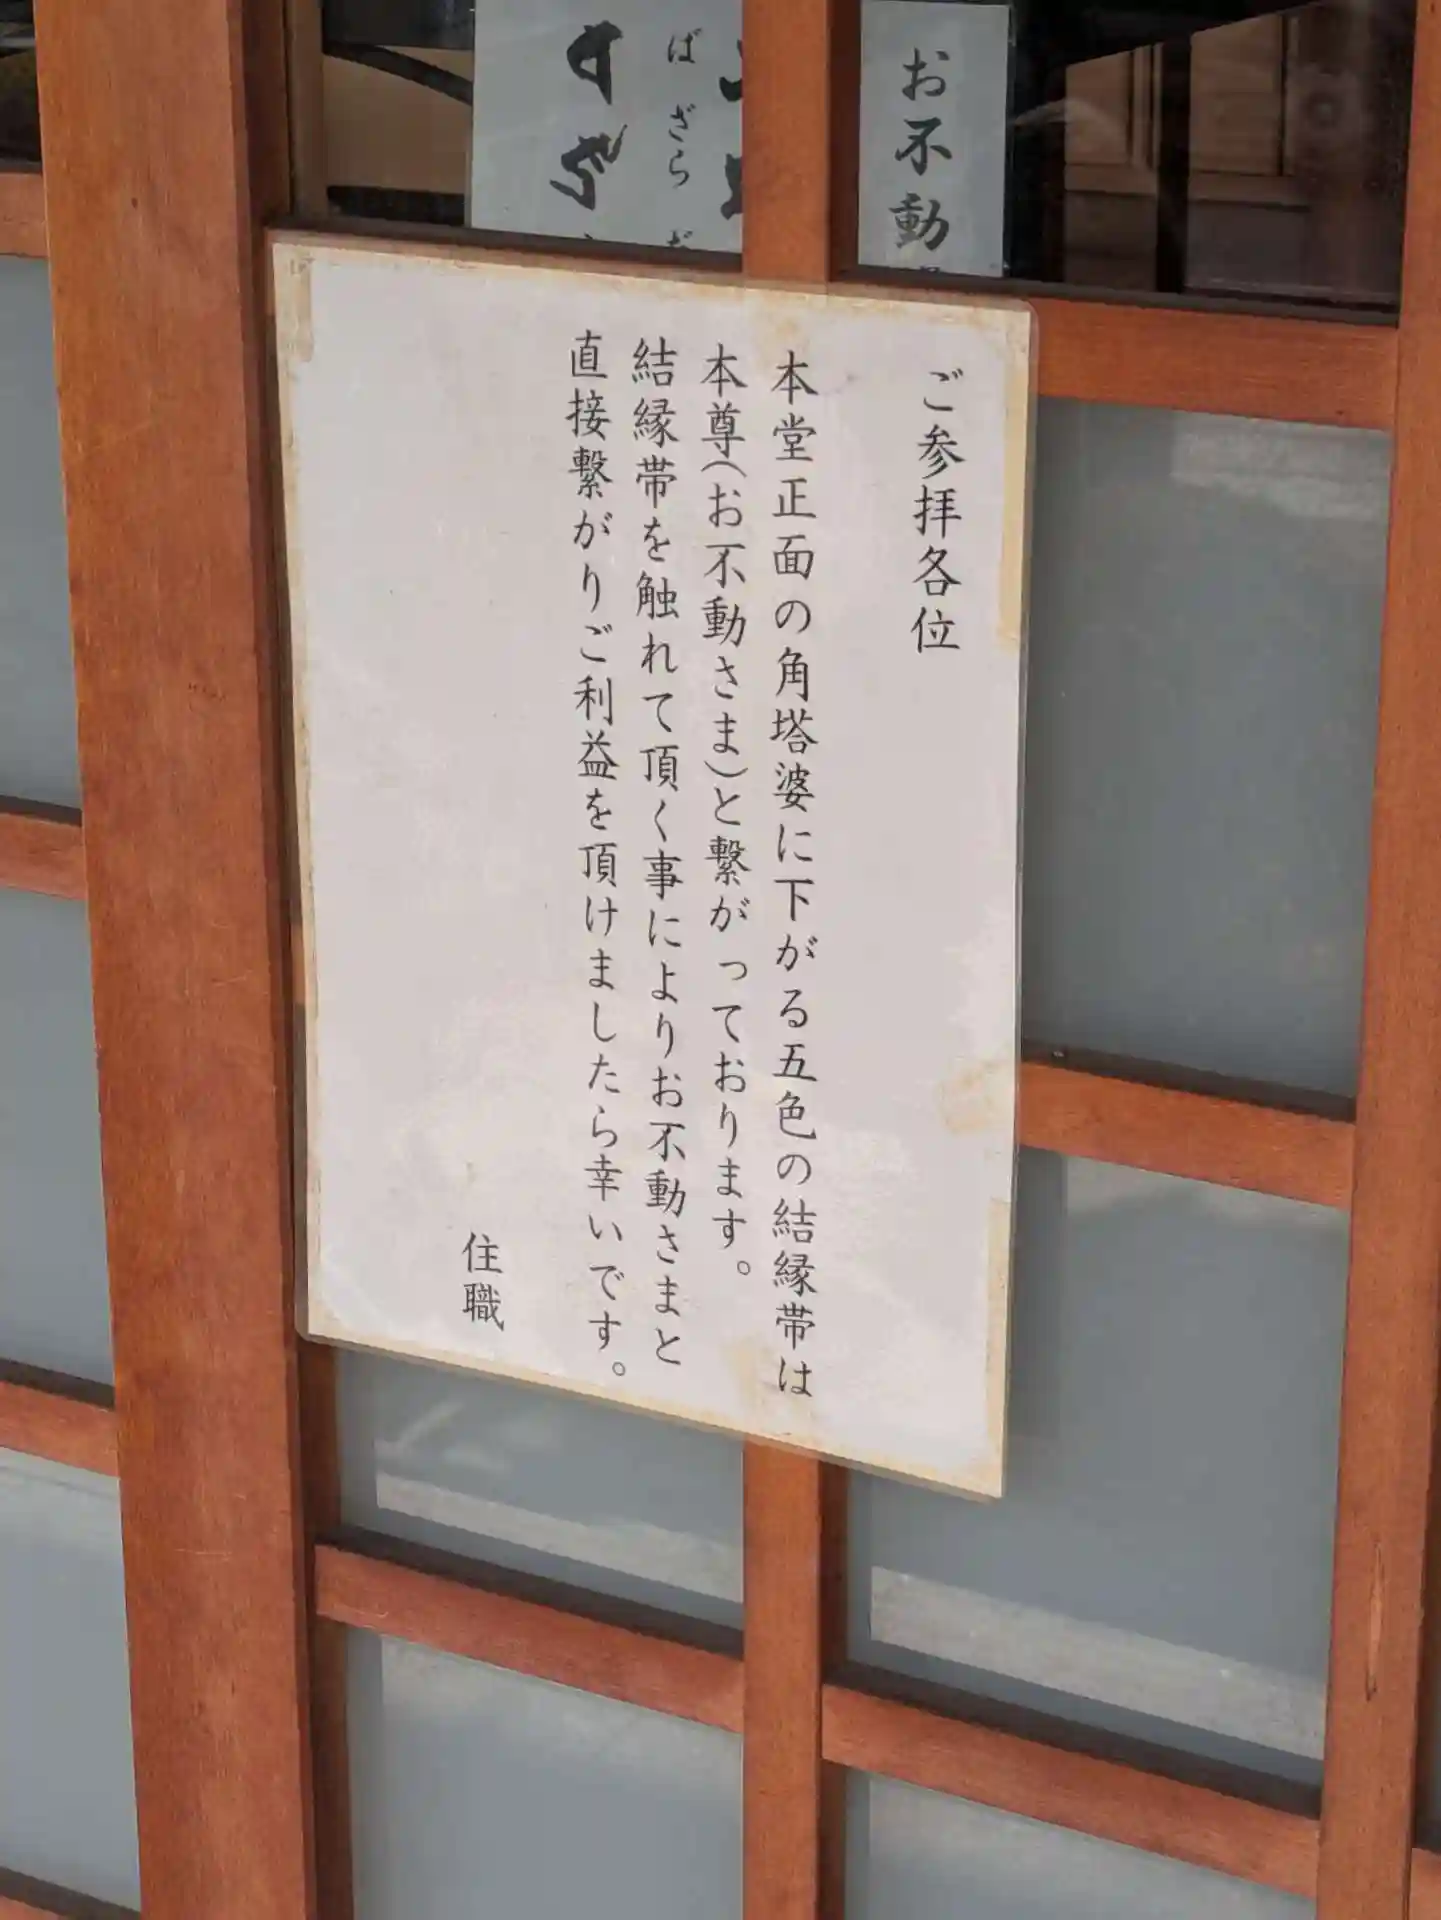 お不動
ばざら
ご参拝各位
本堂正面の角塔婆に下がる五色の結縁帯は
本尊(お不動さま)と繋がっております。
結縁帯を触れて頂く事によりお不動さまと
直接繋がりご利益を頂けましたら幸いです。
住職